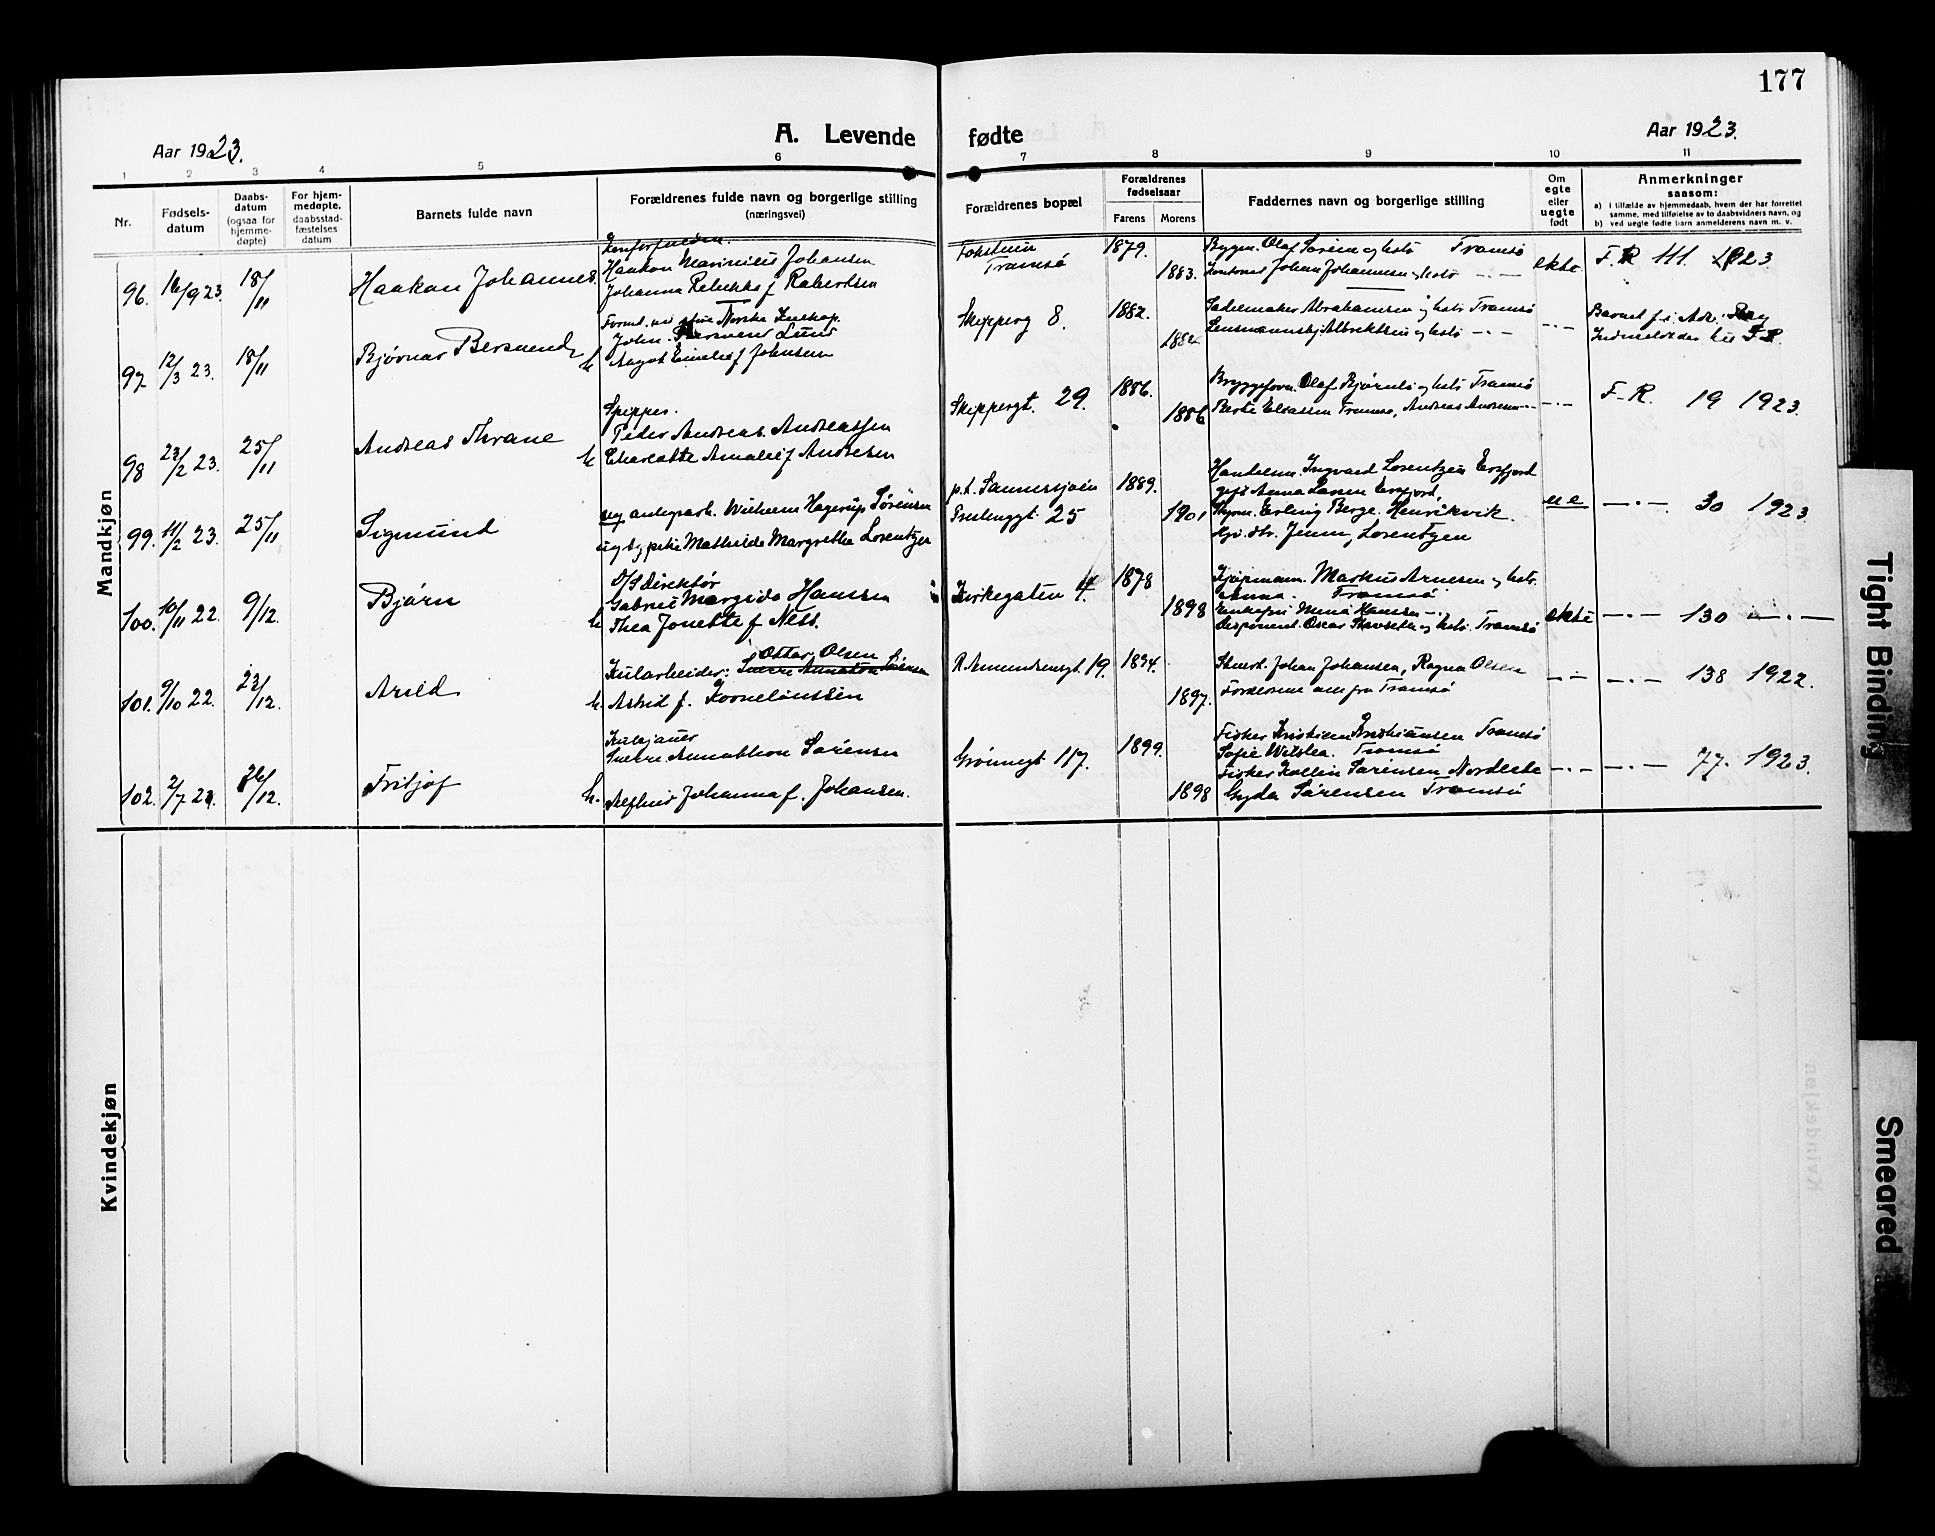 177
Aar 1923.
A. Levende
fødte
Aar 1923.
1 2 3 4 5 6 7 8 9 10 11
Nr.
Fødsels-
datum
Daabs-
datum
(ogsaa for
hjemme-
døpte)
For hjem-
medøpte,
daabsstad-
fæstelses
datum
Barnets fulde navn
Forældrenes fulde navn og borgerlige stilling
(næringsvei)
Forældrenes bopæl
Forældrenes
fødselsaar
Farens Morens
Faddernes navn og borgerlige stilling
Om
egte
eller
uegte
født
Anmerkninger
saasom:
a) I tilfælde av hjemmedaab, hvem der har forrettet
samme, med tilføielse av to daabsvidners navn, og
b) ved uegte fødte barn anmelderens navn m. v.
Mandkjøn
96. 16/9 23. 18/11 Haakon Johannes.
Haakon Marinius Johansen
Johanna Rebekka f Robertsen
Tromsø
1879.
1883.
Bygm. Olaf Sørem og hstr Tromsø
Johan Johannesen og hstr -.-
ekte F.R 111. 1923
97 12/3 23. 18/11 Bjørnar Bersvend
John. Bersvend Lund
Aagot Emelie f Johnsen
Skipperg 8.
1882.
1884
Sadelmaker Abrahamsen og hstr Tromsø
Lensmannsbj. Albrektsen og hstr -.-
-.- Barnet f. i
98 23/2 23. 25/11 Andreas Thrane
Skipper.
Peder Andreas. Andreassen
Charlotte Amalie f Andresen
Skippergt. 29.
1886.
1886
Bryggeform. Olaf Bjørnls og hstr Tromsø
Eliassen Tromsø, Andreas
-.- F-R. 19 1923.
99. 11/2 23. 25/11 Sigmund
Wilhelm Hagerup Sørensen
ug t. pike Mathilde Margrethe Lorentzen
p.t. Sannessjøen
25
1889.
1901
Handelsm. Ingvard Lorentzen Ersfjord
Anna Larsen Ersfjord,
Styrm. Erling Berge. Henrikvik.
Jenny Lorentzen
ue -.- 30 1923
100. 10/11 22. 9/12. Bjørn
D/S Direktør
Gabriel Margido Hanssen
Thea Jonette f Ness.
Kirkegaten 4.
1878
1898
Kjøpmann. Markus Arnesen og hstr.
Anna. Tromsø
Enkefru Mina Hansen -.-
Disponent. Oscar og hstr. Tromsø
ekte -.- 130 -.-
101. 9/10 22. 23/12. Arild
Kularbeider: Ottar Olsen
Astrid f. Kornelinssen
R. Amundsensgt. 19.
1894.
1897.
Stuert. Johan Johansen, Ragna Olsen
Forældrene alle fra Tromsø
-.- -.- 138 1922.
102. 2/7 23. 26/12. Fritjof
Sverre Annathon Sørensen
Johanna f. Johansen.
Grønnegt 117.
1899.
1898
Fisker Kristian Kristiansen Tromsø
Sofie Tromsø
Fisker Kollin Sørensen Nordeste
Gyda Sørensen Tromsø
-.- -.- 77. 1923.
Kvindekjøn
Tight Binding
Smeared